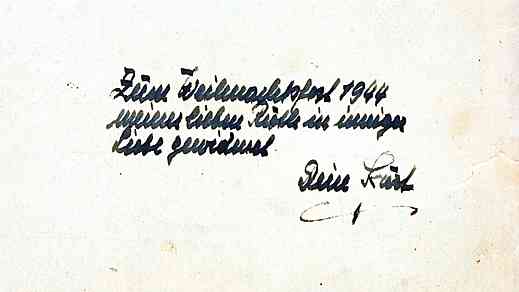 Zum Weihnachtsfest 1944
meiner lieben Käthe in inniger
Liebe gewidmet
Dein Kurt